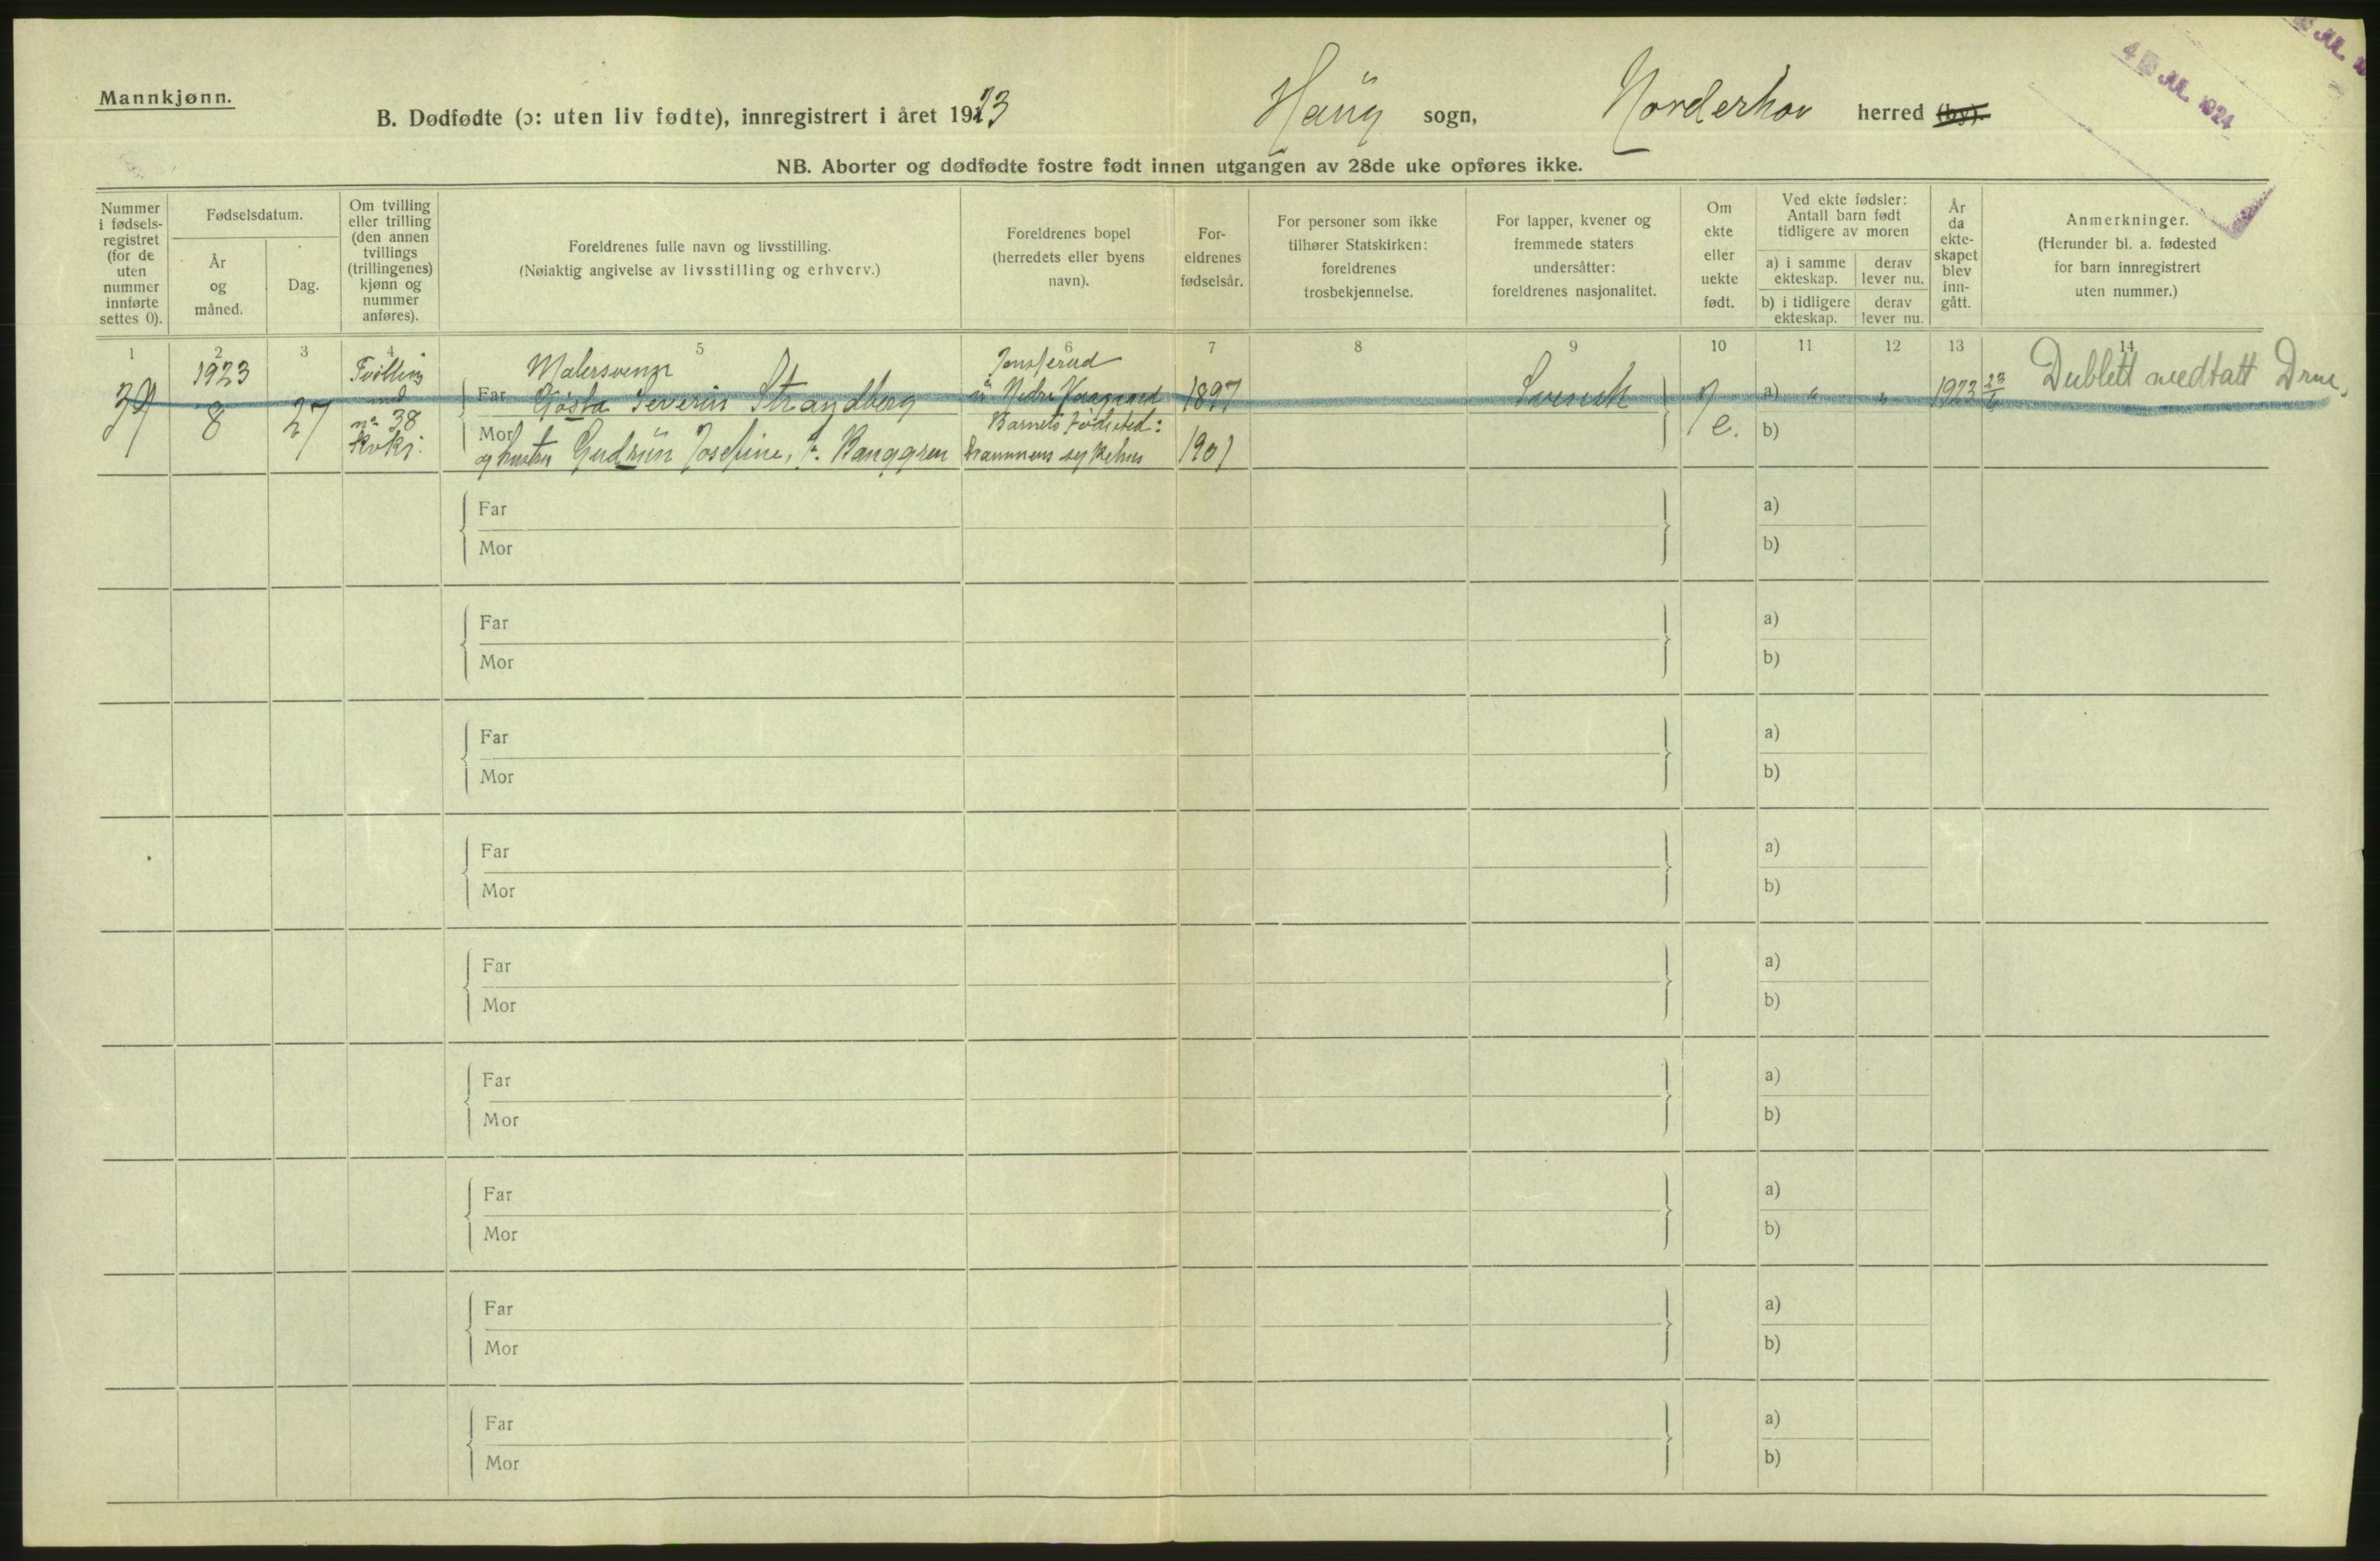 Mannkjønn.
B. Dødfødte (ɔ: uten liv fødte), innregistrert i året 1923
Haug sogn, Norderhov herred (by).
4 JUL. 1924
JUL.
NB. Aborter og dødfødte fostre født innen utgangen av 28de uke opføres ikke.
Nummer i fødsels-registret (for de uten nummer innførte settes 0).
Fødselsdatum.
År og måned.
Dag.
Om tvilling eller trilling (den annen tvillings (trillingenes) kjønn og nummer anføres).
Foreldrenes fulle navn og livsstilling.
(Nøiaktig angivelse av livsstilling og erhverv.)
Foreldrenes bopel (herredets eller byens navn).
For-eldrenes fødselsår.
For personer som ikke tilhører Statskirken: foreldrenes trosbekjennelse.
For lapper, kvener og fremmede staters undersåtter: foreldrenes nasjonalitet.
Om ekte eller uekte født.
Ved ekte fødsler: Antall barn født tidligere av moren
a) i samme ekteskap.
derav lever nu.
b) i tidligere ekteskap.
derav lever nu.
År da ekte-skapet blev inn-gått.
Anmerkninger.
(Herunder bl. a. fødested for barn innregistrert uten nummer.)
1 2 3 4 5 6 7 8 9 10 11 12 13 14
39
1923
8
27
Tvilling
med
no 38
kvkj.
Malersvenn
Far Gösta Severin Strandberg
Mor og hustru Gudrun Josefine, f. Banggren
Barnets fødested:
Drammens sykehus
1897
1901
Svensk
e.
a) " "
b)
1923 23/6
Dublett medtatt Drm.
Far
Mor
a)
b)
Far
Mor
a)
b)
Far
Mor
a)
b)
Far
Mor
a)
b)
Far
Mor
a)
b)
Far
Mor
a)
b)
Far
Mor
a)
b)
Far
Mor
a)
b)
Far
Mor
a)
b)